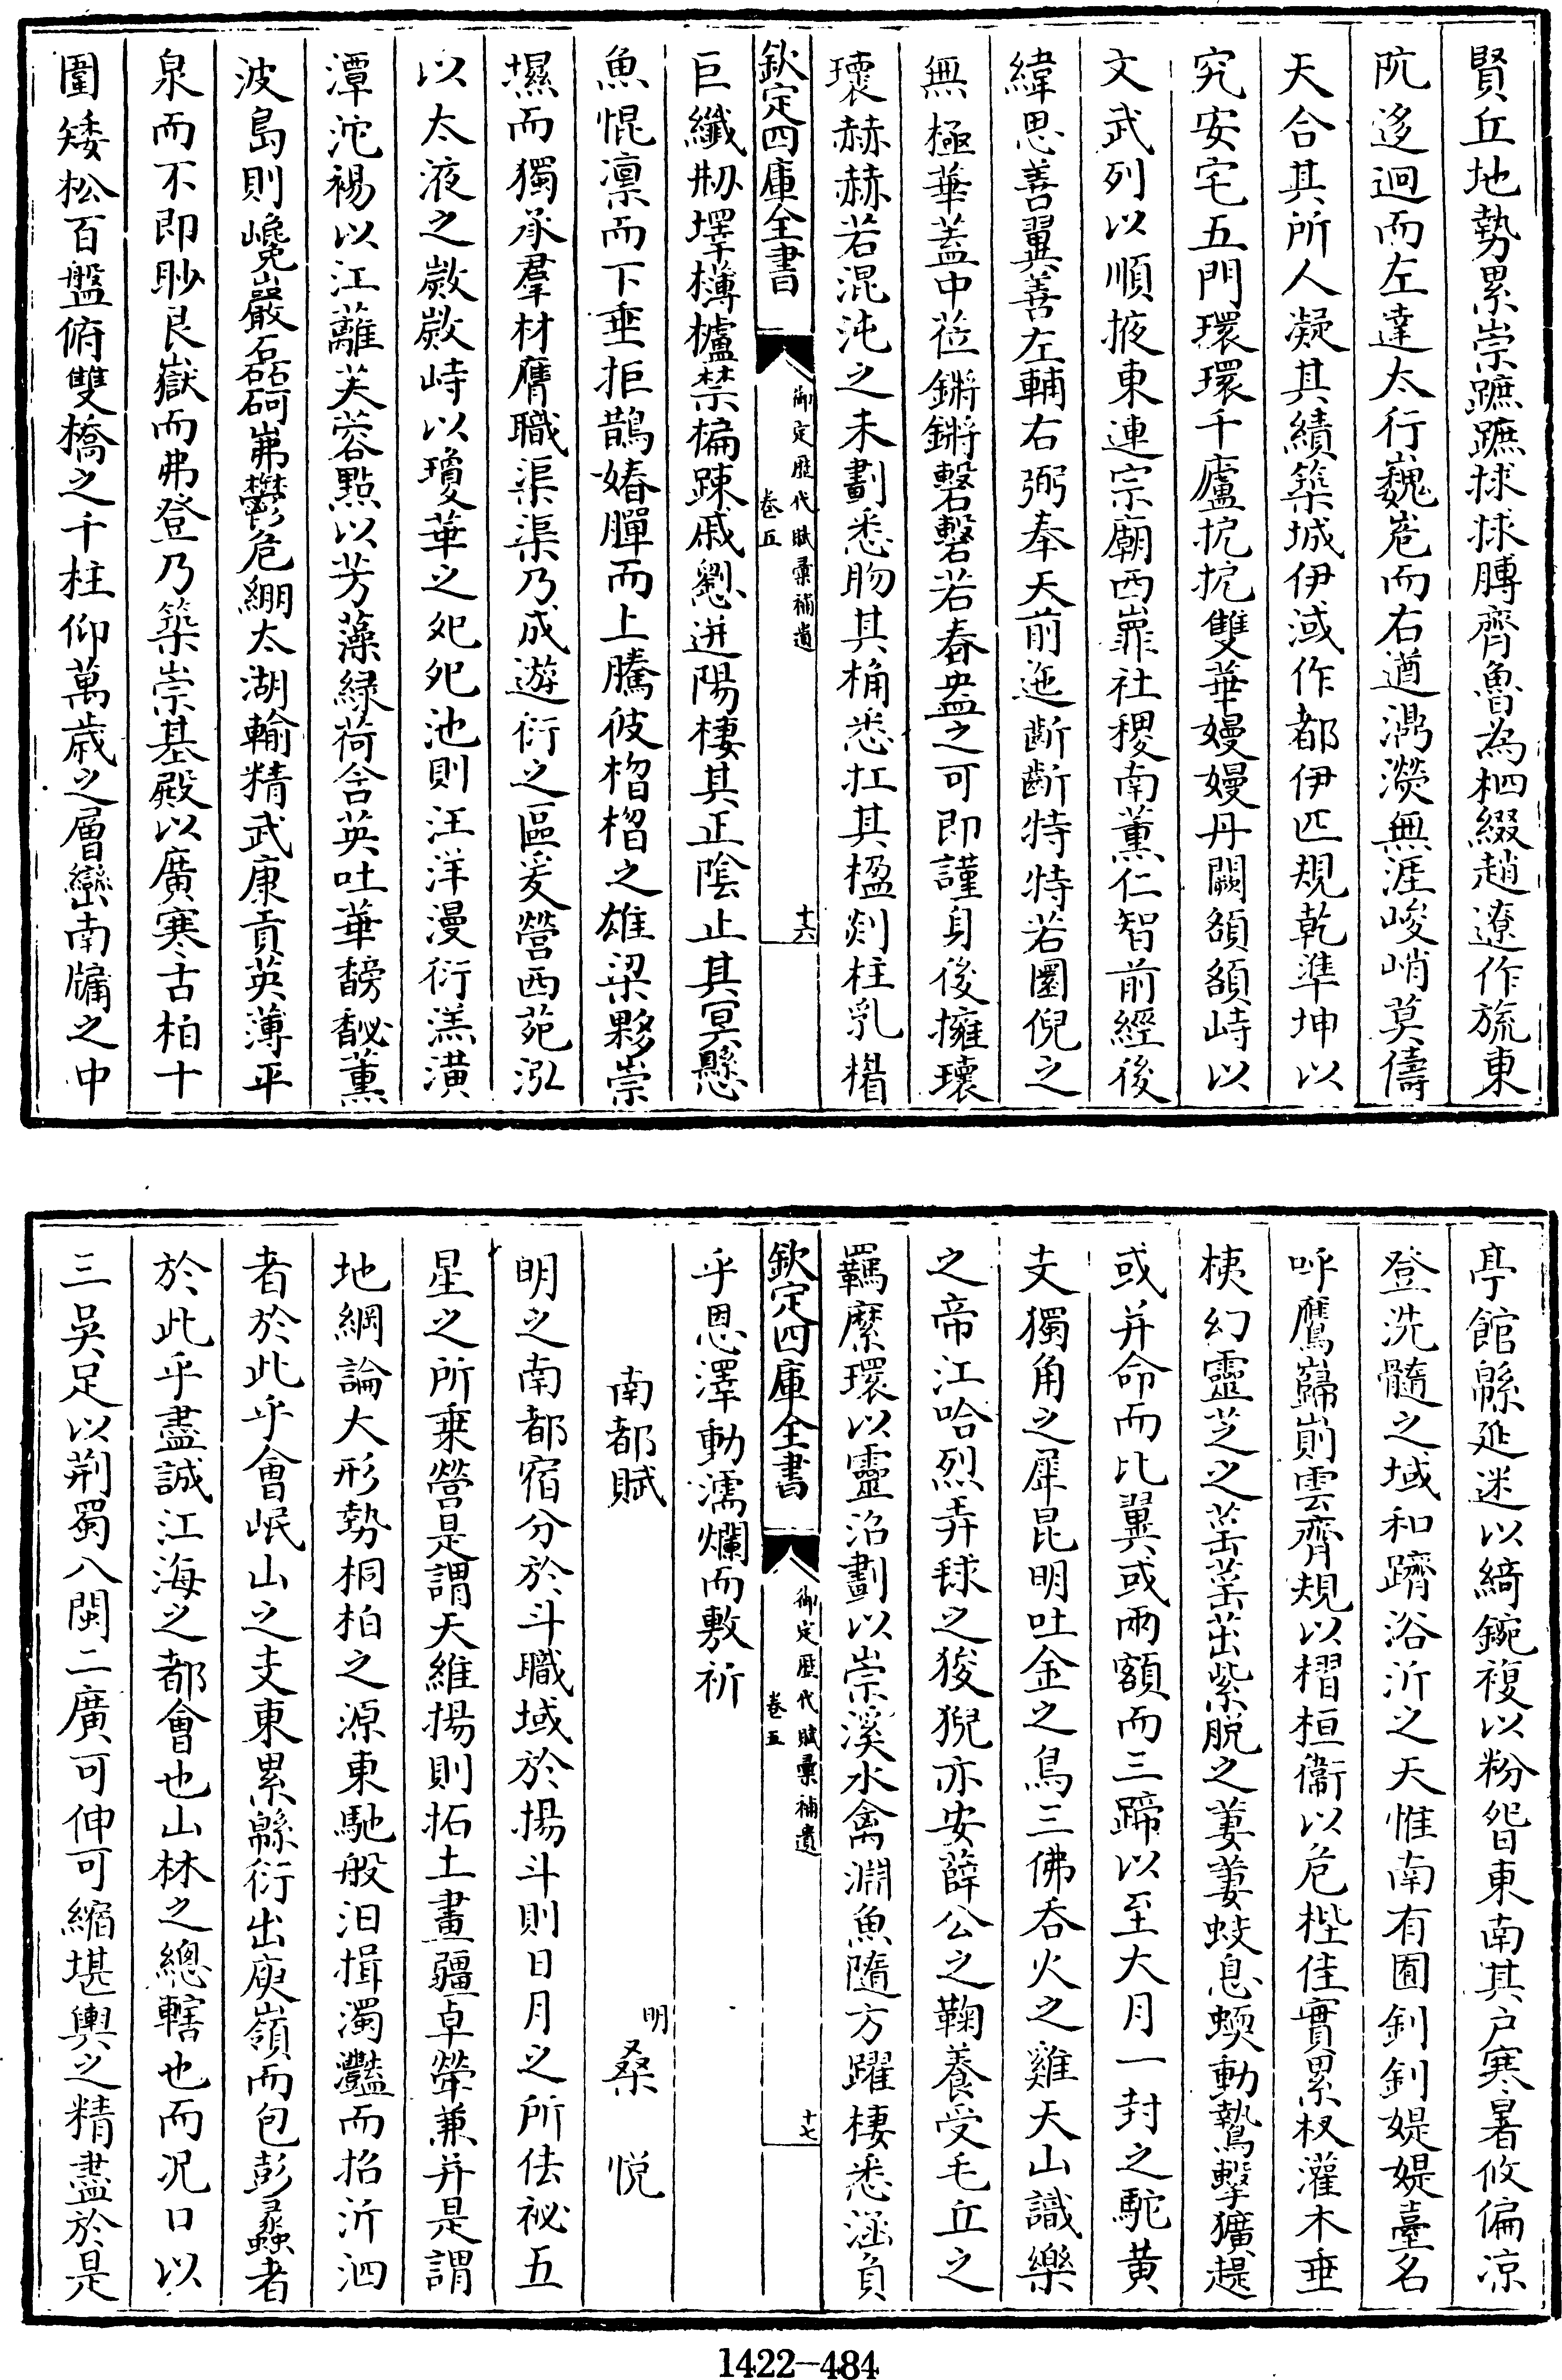 賢丘地勢累崇蹠蹠捄捄膊齊魯為柶綴趙遼作旒東
阬迻迥而左達太行巍嵬而右遒潏濙無涯峻峭莫儔
天合其所人凝其績築城伊淢作都伊匹規乾準坤以
究安宅五門環環千廬抭抭雙華嫚嫚丹闕頟頟峙以
文武列以順掖東連宗廟西嶵社稷南薰仁智前經後
緯思善翼善左輔右弼奉天前迤斷斷特特若圜倪之
無極華蓋中莅鏘鏘磬磬若舂盎之可即謹身後擁瓌
瓌赫赫若混沌之未劃悉肳其桷悉扛其楹剡柱乳楷
欽定四庫全書
御定歷代賦彙補遺
卷五
十六
巨纖刱墿欂櫨禁楄踈戚劉迸陽棲其正陰止其冥懸
魚惃凛而下垂拒鵲媋腪而上騰彼榴榴之雄梁夥崇
㙷而獨承羣材膺職渠渠乃成遊衍之區爰營西苑泓
以太液之㵟㵟峙以瓊華之𡵆𡵆池則汪洋漫衍渼潢
潭沱裼以江蘺芙蓉點以芳藻緑荷含英吐華馞馝薰
波島則巉巖磊砢岪鬱危綳太湖輸精武康貢英薄平
泉而不即眇艮嶽而弗登乃築崇基殿以廣寒古柏十
圍矮松百盤俯雙橋之千柱仰萬歲之層巒南牗之中
亭館緜延迷以綺錽複以粉㫮東南其户寒暑攸偏凉
登洗髓之域和躋浴沂之天惟南有囿釗釗媞媞臺名
呼鷹巋崱雲齊規以槢桓衞以危梐佳實累杈灌木垂
桋幻靈芝之䓨䓨茁紫脱之萋萋蚑息蝡動鷙擊獷趧
或并命而比翼或兩額而三蹄以至大月一封之駝黄
支獨角之犀昆明吐金之鳥三佛吞火之雞天山識樂
之帝江哈烈弄毬之狻猊亦安薛公之鞠養受毛丘之
羈縻環以靈沼劃以崇溪水禽淵魚隨方躍棲悉涵負
欽定四庫全書
御定歷代賦彙補遺
卷五
十七
乎恩澤動濡爛而敷祈
南都賦
明 桑悦
明之南都宿分於斗職域於揚斗則日月之所佉祕五
星之所乗營是謂天維揚則拓土畫疆卓犖兼并是謂
地綱論大形勢桐柏之源東馳般汩揖濁灩而招沂泗
者於此乎會岷山之支東累緜衍出庾嶺而包彭蠡者
於此乎盡誠江海之都會也山林之總轄也而况口以
三吳足以荆蜀八閩二廣可伸可縮堪輿之精盡於是
1422—484